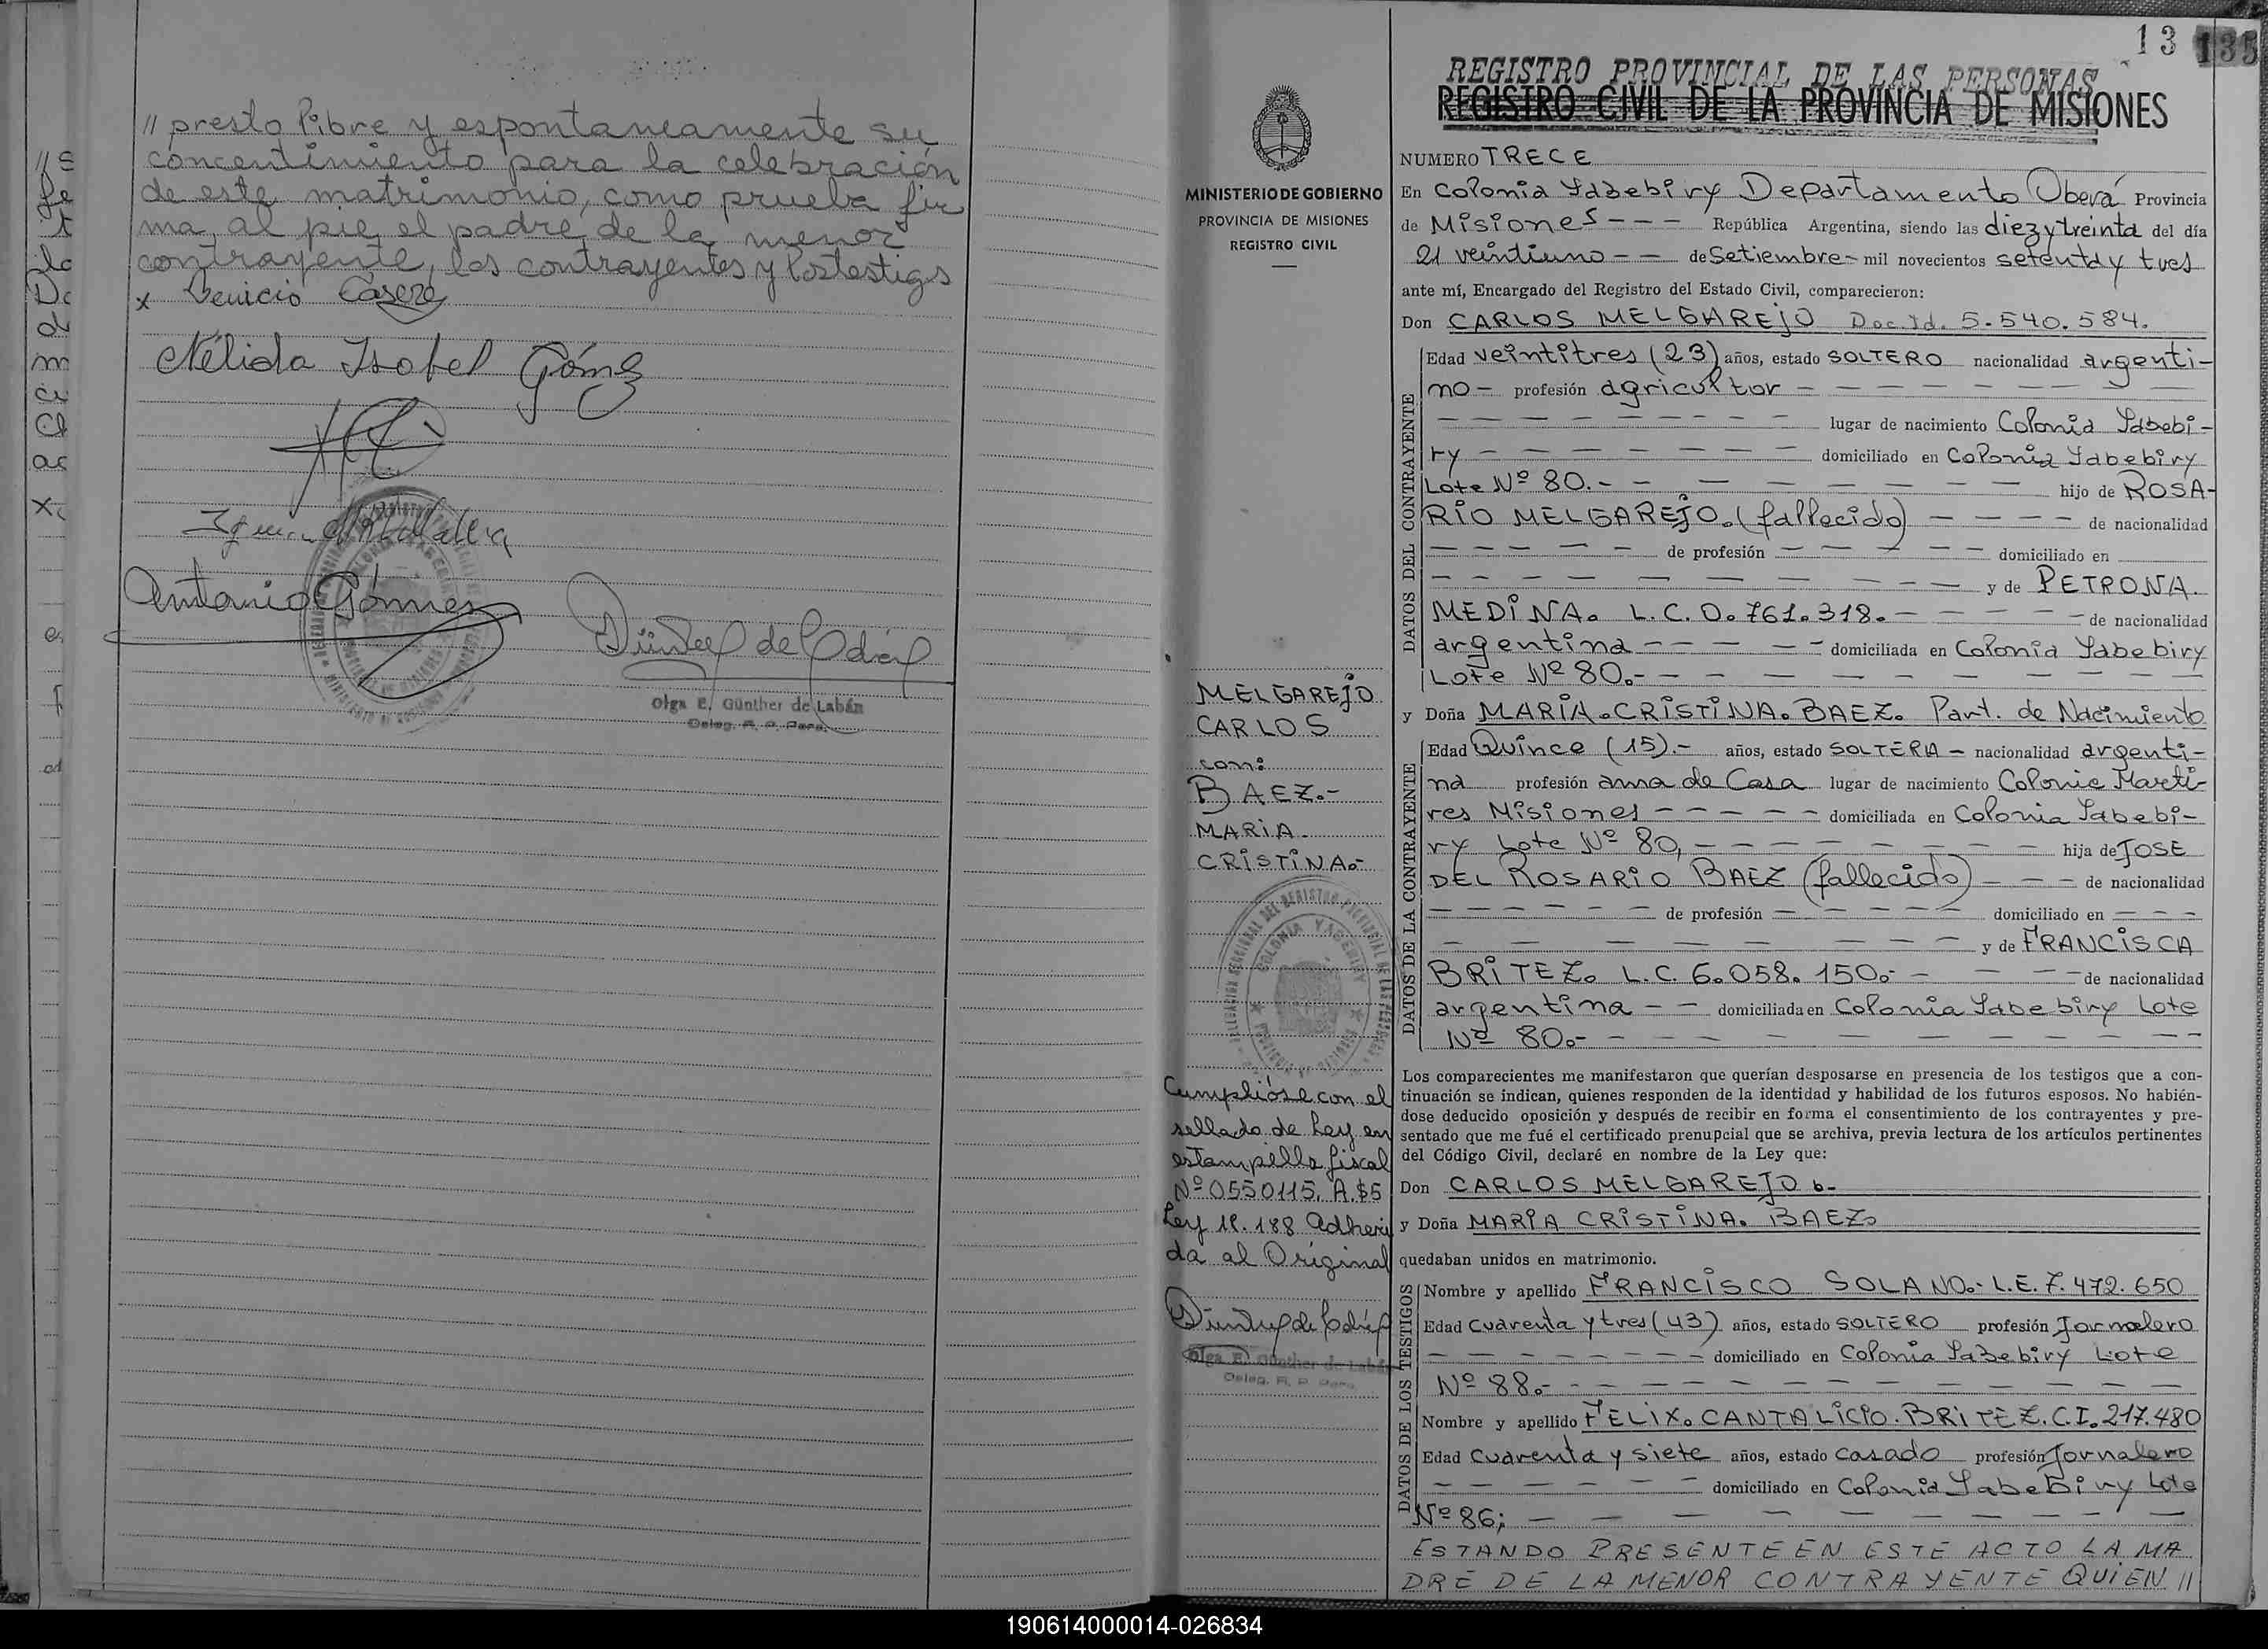 // presto libre y espontaneamente su
concentimiento para la celebración
de este matrimonio, como prueba fir
ma al pie el padre de la menor
contrayente, los contrayentes y los testigs
x Venicio Casere
Nélida Isabel Gómez
Antonio Gómes
Olga E. Günther de Labán
Deleg. R. P. Pers.
13 135
REGISTRO PROVINCIAL DE LAS PERSONAS
REGISTRO CIVIL DE LA PROVINCIA DE MISIONES
MINISTERIO DE GOBIERNO
PROVINCIA DE MISIONES
REGISTRO CIVIL
MELGAREJO
CARLOS
con:
BAEZ.-
MARIA
CRISTINA.-
Cumplióse con el
sellado de Ley en
estampilla fiscal
Nº 0550115. A. $5
Ley 18.188 Adheri
da al Original
Olga E. Günther de Labán
Deleg. R. P. Pers.
NUMERO TRECE
En Colonia Yabebiry Departamento Oberá Provincia
de Misiones - - - República Argentina, siendo las diez y treinta del día
21 veintiuno - - de Setiembre - mil novecientos setenta y tres
ante mí, Encargado del Registro del Estado Civil, comparecieron:
Don CARLOS MELGAREJO Doc. Id. 5.540.584.
DATOS DEL CONTRAYENTE
Edad veintitres (23) años, estado SOLTERO nacionalidad argenti-
no - profesión agricultor - - - - - - -
- - - - - - - - lugar de nacimiento Colonia Yabebi-
ry - - - - - - - domiciliado en Colonia Yabebiry
Lote Nº 80.- - - - - - - - hijo de ROSA-
RIO MELGAREJO. (fallecido) - - - - de nacionalidad
- - - - - de profesión - - - - - - domiciliado en
- - - - - - - - - - - y de PETRONA.
MEDINA. L.C. 0.761.318.- - - - - de nacionalidad
argentina - - - - - domiciliada en Colonia Yabebiry
Lote Nº 80.- - - - - - - - - - -
y Doña MARIA. CRISTINA. BAEZ. Part. de Nacimiento
DATOS DE LA CONTRAYENTE
Edad Quince (15).- años, estado SOLTERA - nacionalidad argenti-
na profesión ama de Casa lugar de nacimiento Colonia Marti-
res Misiones - - - - - domiciliada en Colonia Yabebi-
ry Lote Nº 80, - - - - - - - - hija de JOSE
DEL ROSARIO BAEZ (fallecido) - - - de nacionalidad
- - - - - - de profesión - - - - - domiciliado en - - -
- - - - - - - - - y de FRANCISCA
BRITEZ. L.C. 6.058.150.- - - - de nacionalidad
argentina - - domiciliada en Colonia Yabebiry Lote
Nº 80.- - - - - - - - - - -
Los comparecientes me manifestaron que querían desposarse en presencia de los testigos que a con-
tinuación se indican, quienes responden de la identidad y habilidad de los futuros esposos. No habién-
dose deducido oposición y después de recibir en forma el consentimiento de los contrayentes y pre-
sentado que me fué el certificado prenupcial que se archiva, previa lectura de los artículos pertinentes
del Código Civil, declaré en nombre de la Ley que:
Don CARLOS MELGAREJO.-
y Doña MARIA CRISTINA. BAEZ.
quedaban unidos en matrimonio.
DATOS DE LOS TESTIGOS
Nombre y apellido FRANCISCO SOLANO.- L.E. 7.472.650
Edad cuarenta y tres (43) años, estado SOLTERO profesión Jornalero
- - - - - - - domiciliado en Colonia Yabebiry Lote
Nº 88.- - - - - - - - - - -
Nombre y apellido FELIX. CANTALICIO. BRITEZ. C.I. 217.480
Edad Cuarenta y siete años, estado casado profesión Jornalero
- - - - - - - domiciliado en Colonia Yabebiry Lote
Nº 86; - - - - - - - - -
ESTANDO PRESENTE EN ESTE ACTO LA MA
DRE DE LA MENOR CONTRAYENTE QUIEN //
190614000014-026834